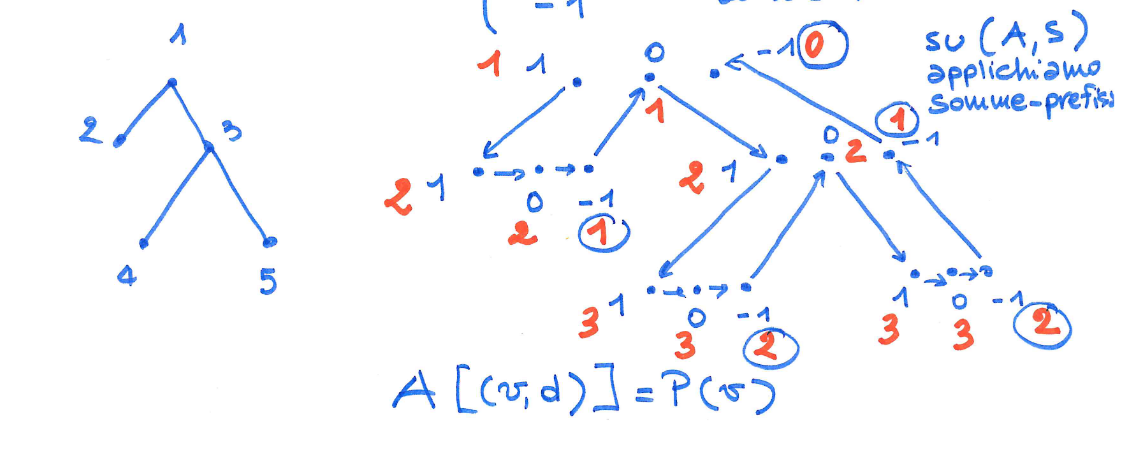 - 1
1
1 1
0
- 1 0
su (A, S)
applichiamo
somme-prefis
1
2
3
1
0
2
- 1
2 1
0
- 1
2
1
2 1
4
5
3 1
0
- 1
3
2
1
0
- 1
3
3
2
A [(v, d)] = P(v)